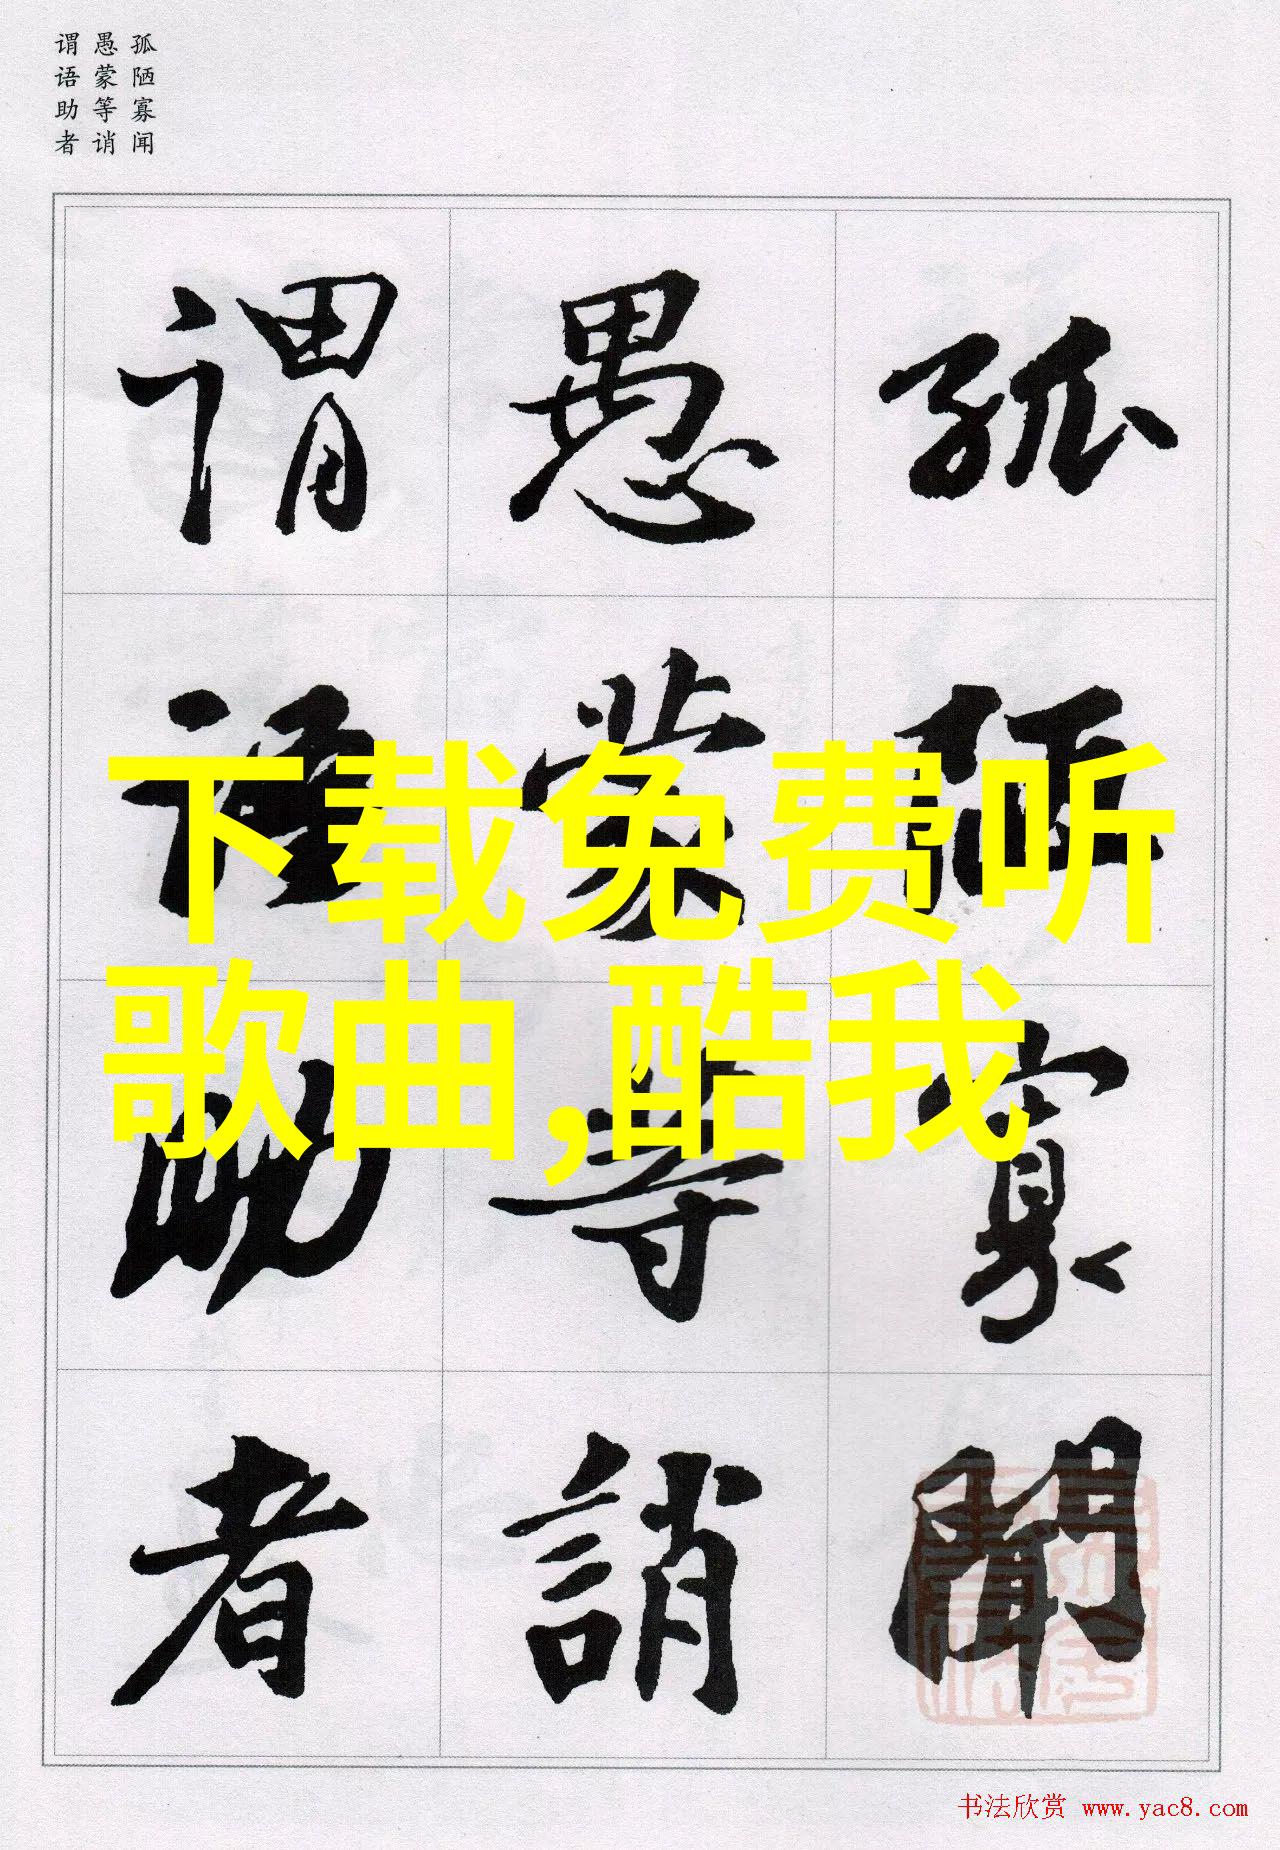 孤陋寡闻
愚蒙等诮
谓语助者
孤陋寡聞
愚蒙等誚
谓语助者
下载免费听
歌曲,酷我
书法欣赏 www.yac8.com